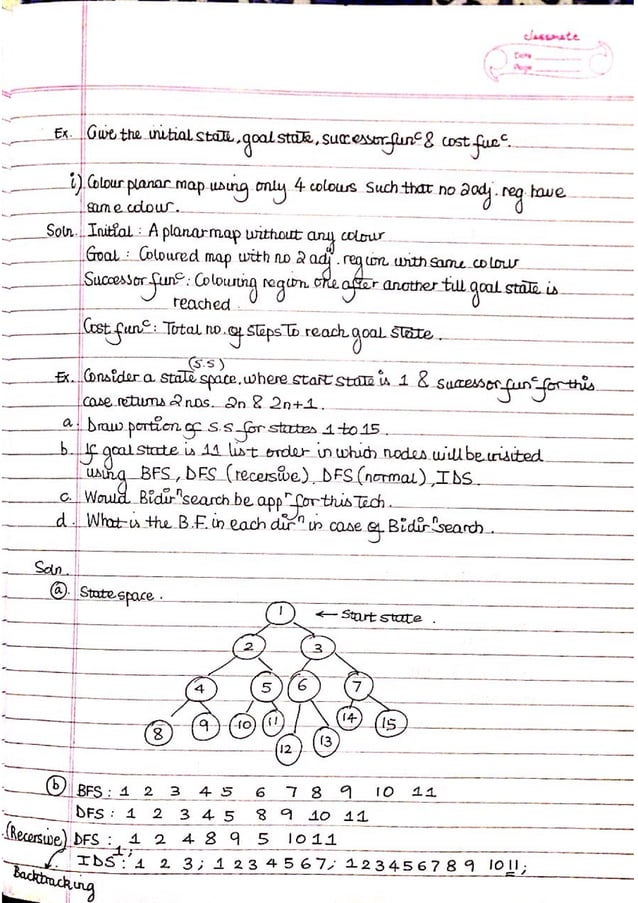 classmate
Date
Page
Ex. Give the initial state, goal state, successor funᶜ & cost fucᶜ.
i) Colour planar map using only 4 colours such that no 2 adj. reg have
same colour.
Soln. Initial : A planar map without any colour
Goal : Coloured map with no 2 adj. region with same colour
Successor funᶜ : Colouring region one after another till goal state is
reached.
Cost funᶜ : Total no. of steps to reach goal state.
(S.S)
Ex. Consider a state space, where start state is 1 & successor funᶜ for this
case returns 2 nos. 2n & 2n+1.
a. Draw portion of S.S for states 1 to 15.
b. If goal state is 11 list order in which nodes will be visited
using BFS, DFS (recersive), DFS (normal), IDS.
c. Would Bidirⁿ search be appʳ for this Tech.
d. What is the B.F. in each dirⁿ in case of Bidirⁿ search.
Soln.
(a) State space.
1 ← Start state.
2 3
4 5 6 7
8 9 10 11 12 13 14 15
(b) BFS : 1 2 3 4 5 6 7 8 9 10 11
DFS : 1 2 3 4 5 8 9 10 11
(Recersive) DFS : 1 2 4 8 9 5 10 11
IDS : 1; 1 2 3; 1 2 3 4 5 6 7; 1 2 3 4 5 6 7 8 9 10 11;
Backtracking